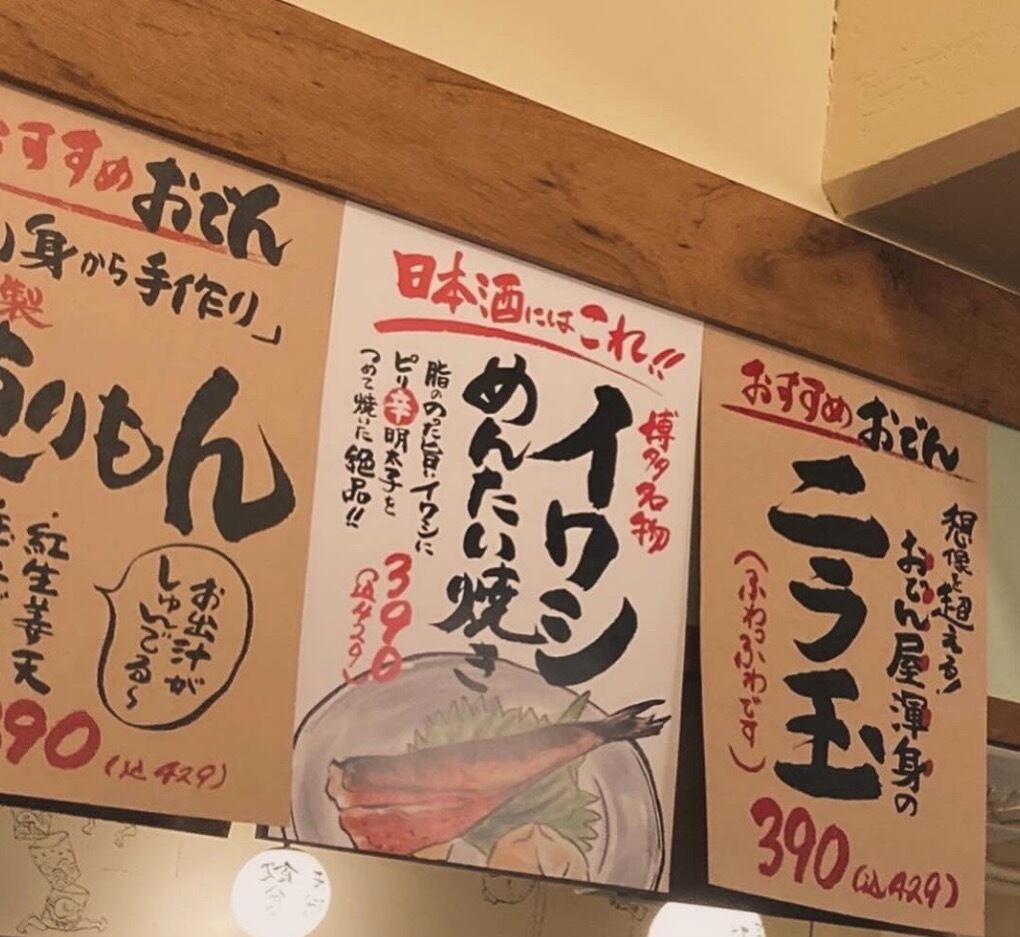 おすすめ おでん
身から手作り」
製
りもん
紅生姜天
お出汁が
しゅんでる〜
390
(込429)
日本酒にはこれ!!
博多名物
イワシ
めんたい焼き
脂ののった旨いイワシに
ピリ辛明太子を
つめて焼いた絶品!!
390
(込429)
おすすめ おでん
想像を超える!
おでん屋渾身の
ニラ玉
(ふわっふわです)
390
(込429)